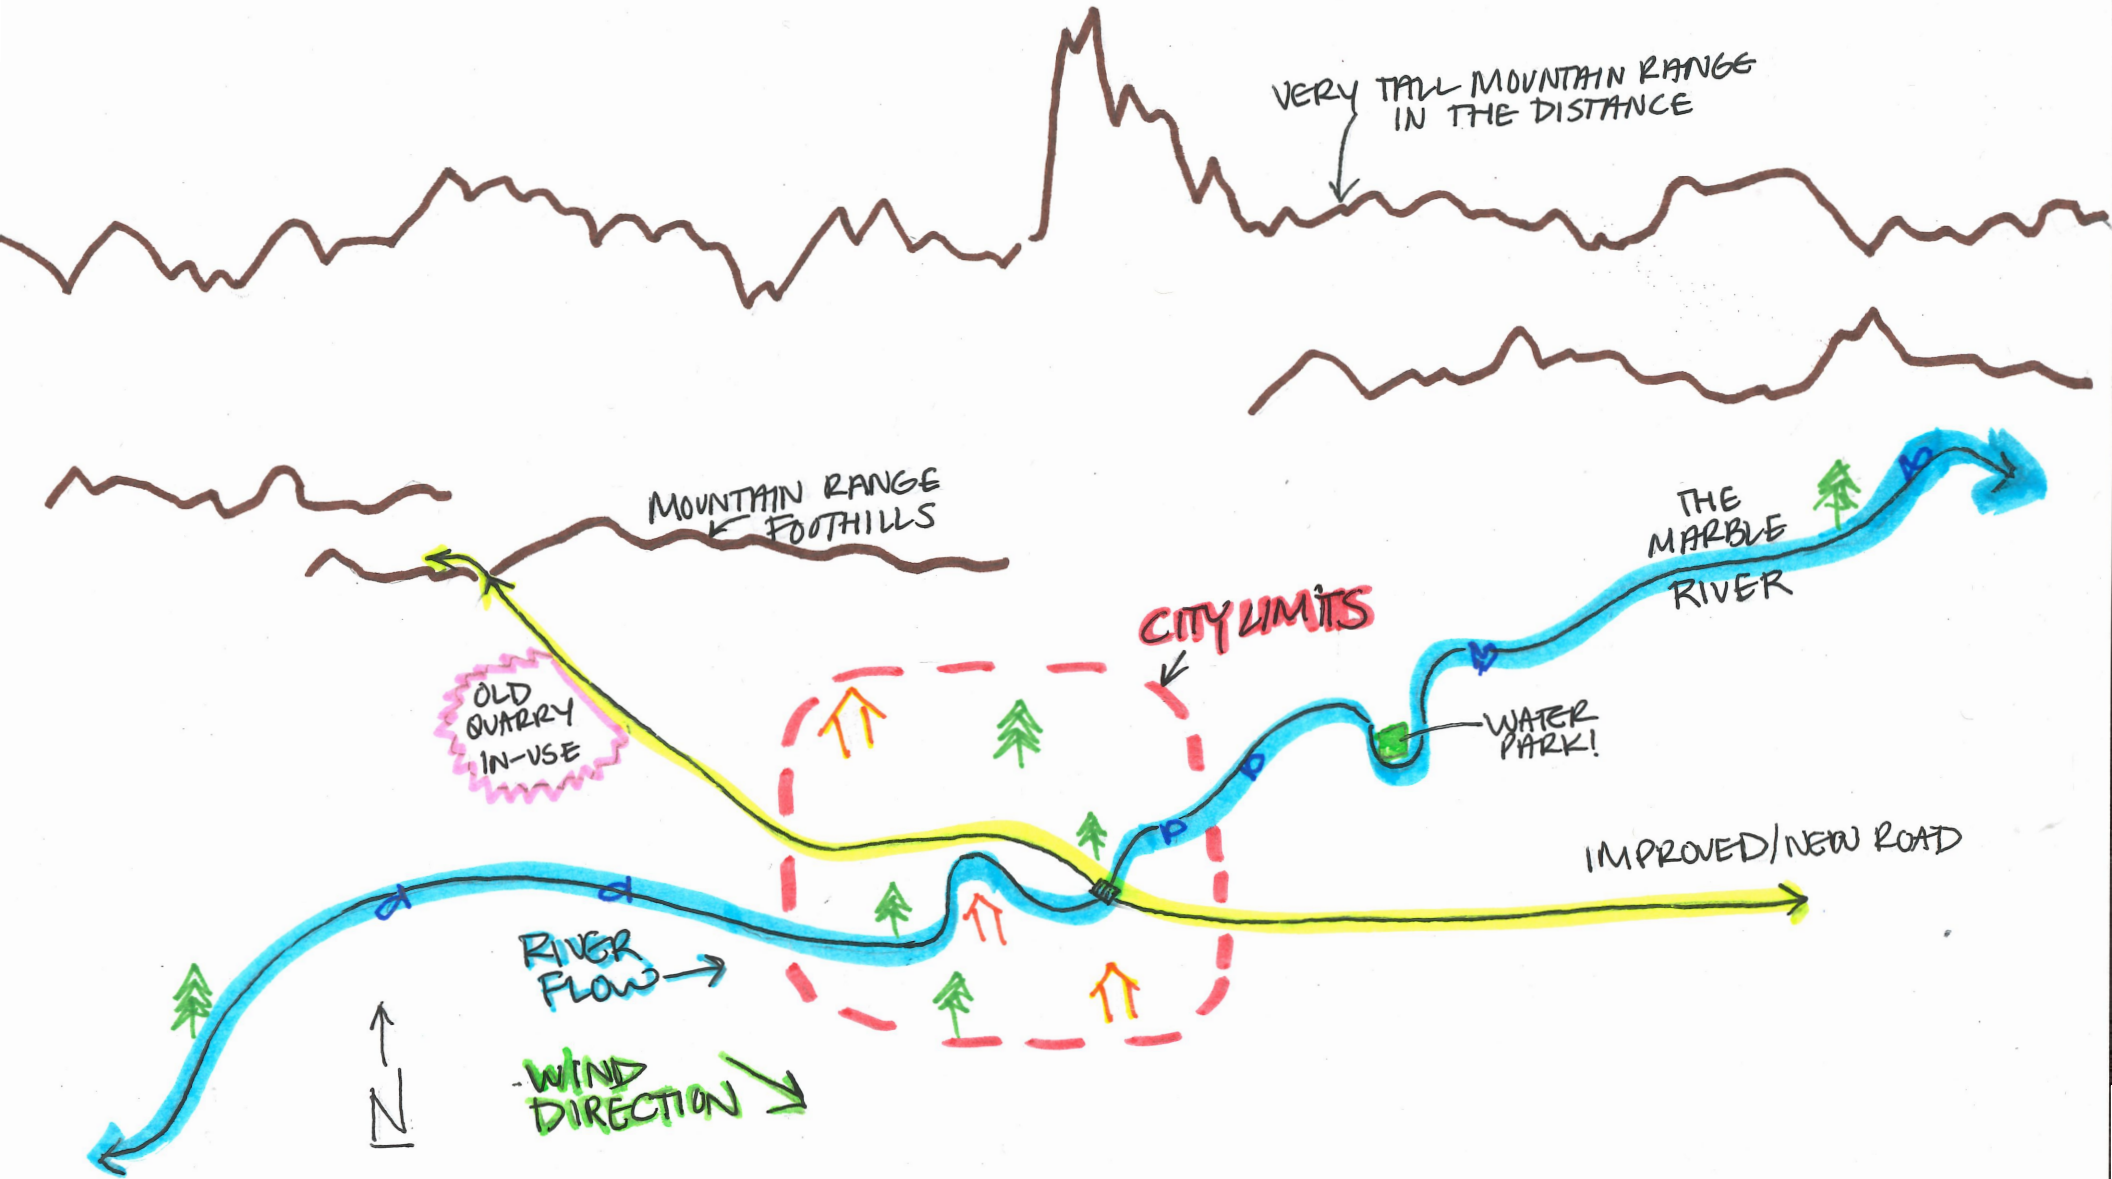 VERY TALL MOUNTAIN RANGE
IN THE DISTANCE
MOUNTAIN RANGE
FOOTHILLS
THE
MARBLE
RIVER
CITY LIMITS
OLD
QUARRY
IN-USE
WATER
PARK!
IMPROVED/NEW ROAD
RIVER
FLOW
N
WIND
DIRECTION